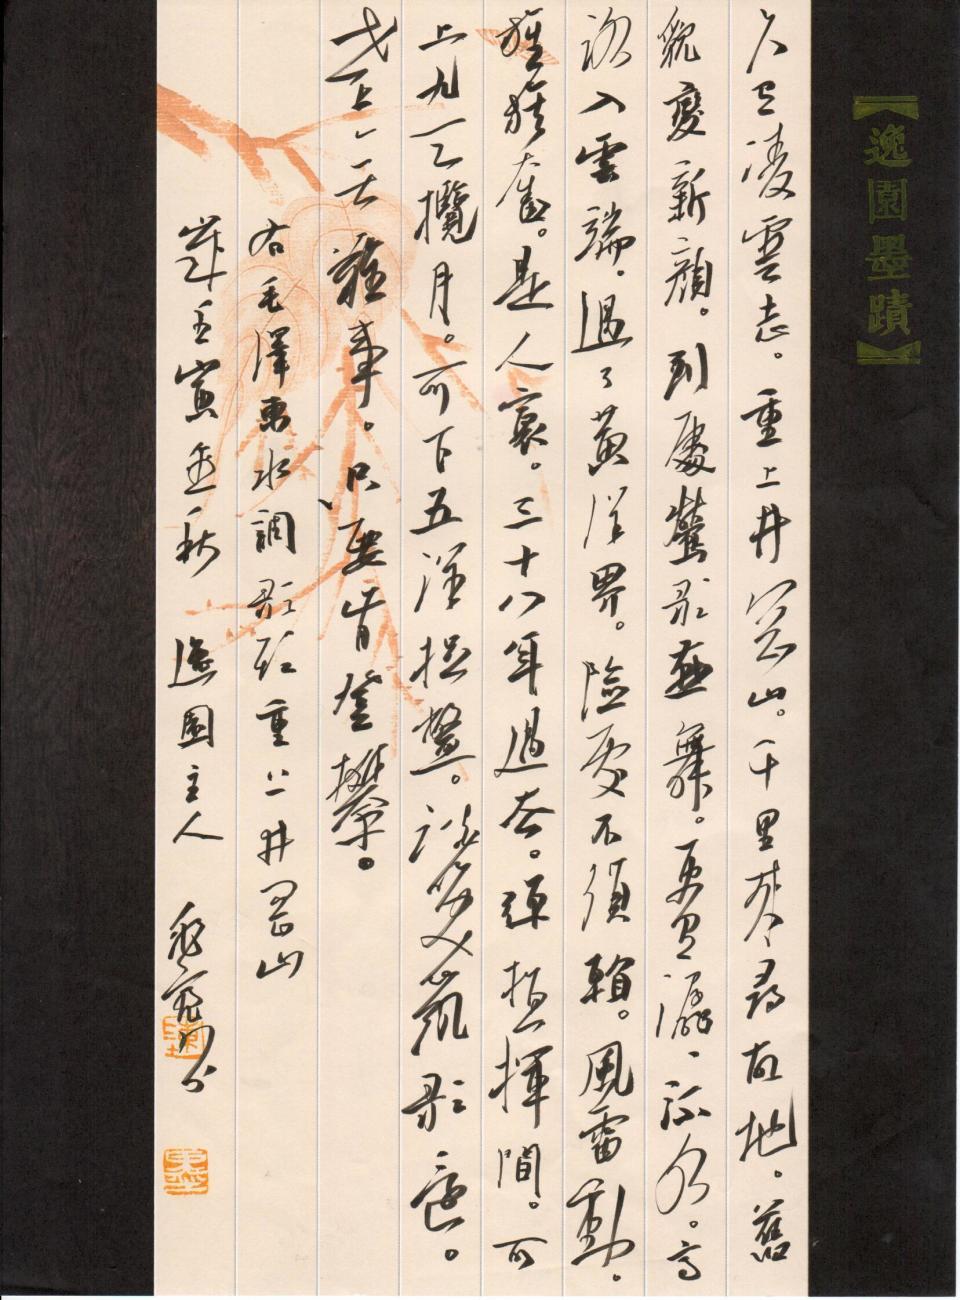 【逸園墨蹟】
久有凌雲志。重上井岡山。千里來尋故地。舊
貌變新顏。到處鶯歌燕舞。更有潺潺流水。高
路入雲端。過了黃洋界。險處不須看。風雷動。
旌旗奮。是人寰。三十八年過去。彈指揮間。可
上九天攬月。可下五洋捉鱉。談笑凱歌還。
世上无難事。只要肯登攀。
右毛澤東水調歌頭重上井岡山
歲壬寅金秋 逸園主人